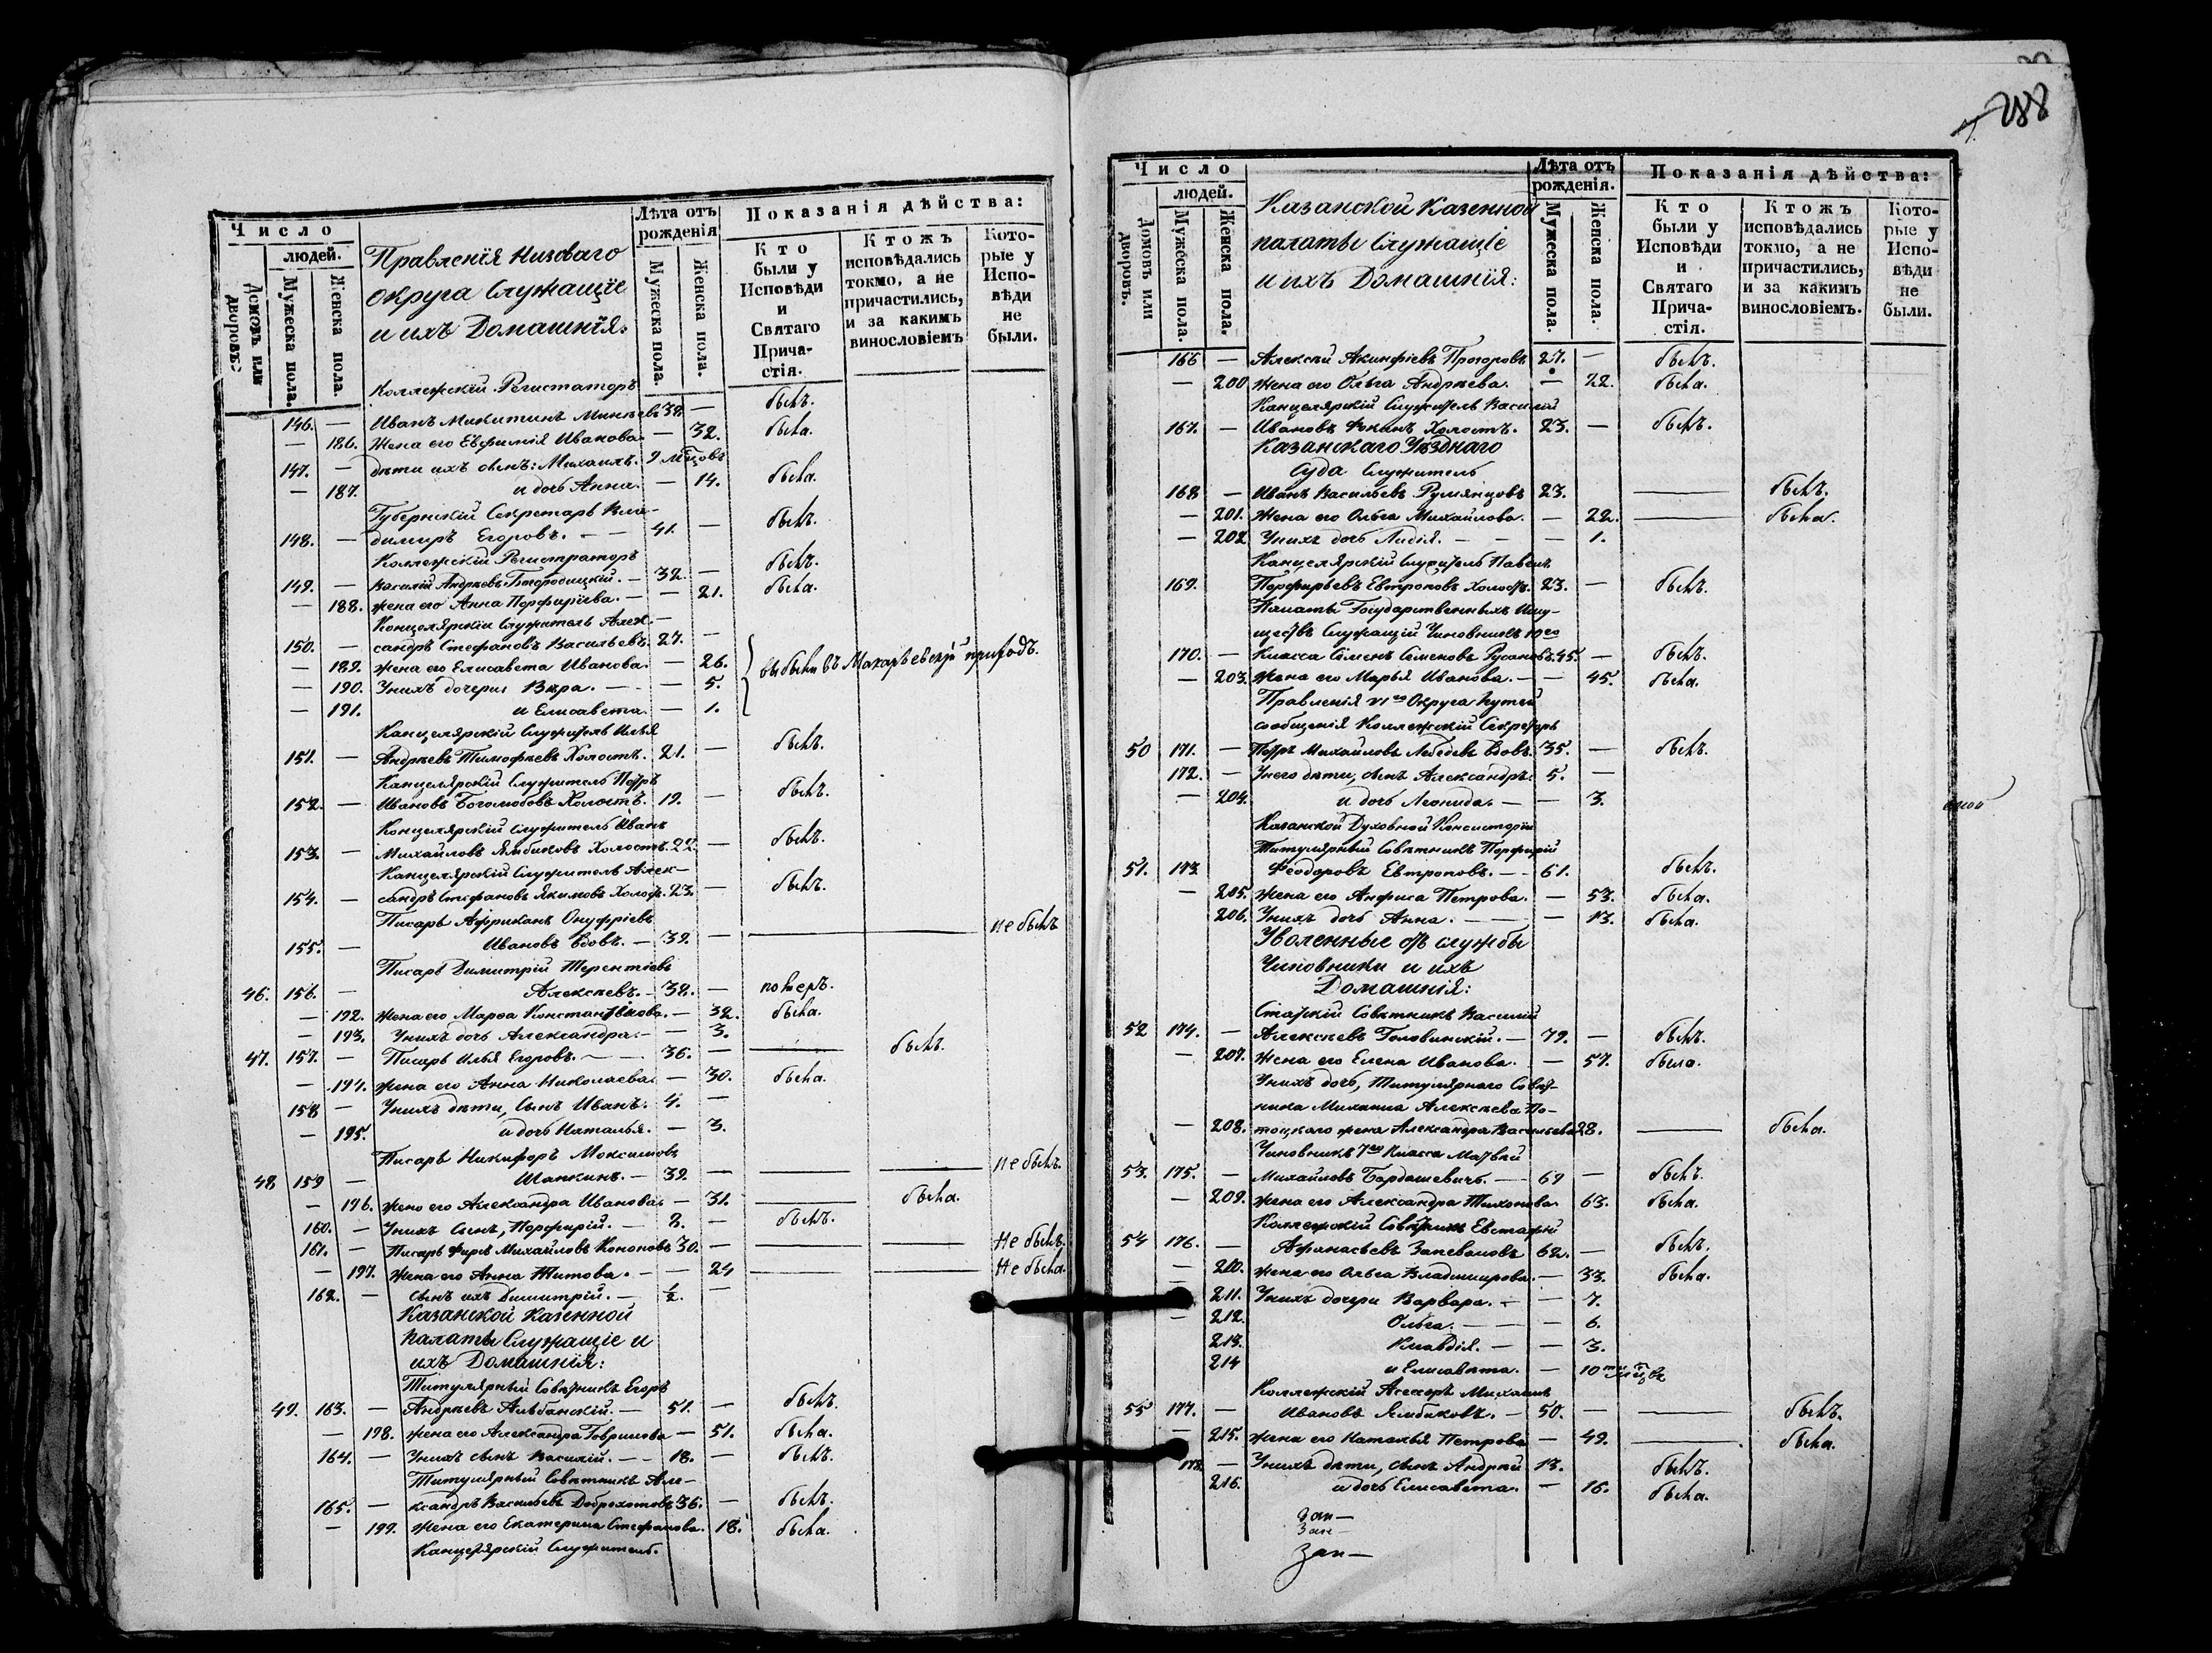 Число
людей.
Домовъ или дворовъ.
Мужеска пола.
Женска пола.
Правленія Низоваго
округа Служащіе
и ихъ Домашнія.
Лѣта отъ рожденія
Мужеска пола.
Женска пола.
Показанія дѣйства:
Кто были у Исповѣди и Святаго Причастія.
Ктожъ исповѣдались токмо, а не причастились, и за какимъ винословіемъ
Которые у Исповѣди не были.
Коллежскій Регистаторъ
146. — Иванъ Никитинъ 38. — былъ.
— 186. Жена его Евфимія Иванова. — 32. была.
147. — дѣти ихъ сынъ: Михаилъ. 9 мѣцовъ
— 187. и дочь Анна. — 14. была.
Губернскій Секретарь Вла-
148. — димиръ Егоровъ. — — 41. — былъ.
Коллежскій Регистраторъ
149. — Василій Андреевъ Богородицкій. — 32. — былъ.
— 188. жена его Анна Порфиріева. — — 21. была.
Канцелярскій Служитель Алек-
150. — сандръ Стефановъ Васильевъ. 27. —
— 189. жена его Елисавета Иванова. — 26. выбыли въ Макарьевскій приходъ.
— 190. Унихъ дочери Вѣра. — — 5.
— 191. и Елисавета. — 1.
Канцелярскій Служитель Илья
151. — Андреевъ Тимофеевъ Холостъ. 21. — былъ.
Канцелярскій Служитель Петръ
152. — Ивановъ Боголюбовъ Холостъ. 19. — былъ.
Канцелярскій Служитель Иванъ
153. — Михайловъ Ямбиковъ Холостъ. 22. — былъ.
Канцелярскій Служитель Алек-
154. — сандръ Стефановъ Якимовъ Холост. 23. — былъ.
Писарь Африканъ Онуфріевъ
155. — Ивановъ вдовъ. — 39. — — — не былъ
Писарь Димитрій Терентіевъ
46. 156. — Алексѣевъ. — 38. — померъ.
— 192. Жена его Марѳа Константинова. — 32. была.
— 193. Унихъ дочь Александра. — — 3.
47. 157. — Писарь Илья Егоровъ. — — 36. — — былъ.
— 194. Жена его Анна Николаева. — 30. была.
158 — Унихъ дѣти, Сынъ Иванъ. 4. —
— 195. и дочь Наталья. — 3.
Писарь Никифоръ Максимовъ
48 159 — Шапкинъ. — 39. — — — не былъ.
— 196. Жена его Александра Иванова. — 31. — была.
160. — Унихъ Сынъ, Порфирій. — 8. — былъ.
161. — Писарь Фирсъ Михайловъ Кононовъ 30. — — — Не былъ.
— 197. Жена его Анна Титова. — — 24 — — Не была.
162. — сынъ ихъ Димитрій. — ½. —
Казанской Казенной
палаты Служащіе и
ихъ Домашнія:
Титулярный Совѣтникъ Егоръ
49. 163. — Андреевъ Албанскій. — 51. — былъ.
— 198. жена его Александра Гаврилова — 51. была.
164. — Унихъ сынъ Василій. — — 18. — былъ.
Титулярный Совѣтникъ Але-
165. — ксандръ Васильевъ Доброхотовъ 36. — былъ.
— 199. Жена его Екатерина Стефанова. 18. была.
Канцелярскій Служитель.
288
Число
людей.
Домовъ или дворовъ.
Мужеска пола.
Женска пола.
Казанской Казенной
палаты Служащіе
и ихъ Домашнія:
Лѣта отъ рожденія.
Мужеска пола.
Женска пола.
Показанія дѣйства:
Кто были у Исповѣди и Святаго Причастія.
Ктожъ исповѣдались токмо, а не причастились, и за какимъ винословіемъ.
Которые у Исповѣди не были.
166 — Алексѣй Акинфіевъ Прозоровъ 27. — былъ.
— 200 Жена его Ольга Андреева. — 22. была.
Канцелярскій Служитель Василій
167. — Ивановъ Фокинъ Холостъ. 23. — былъ.
Казанскаго Уѣзднаго
Суда Служитель
168 — Иванъ Васильевъ Румянцовъ 23. — былъ.
— 201. Жена его Ольга Михайлова. — 22. — была.
— 202 Унихъ дочь Лидія. — — — 1.
Канцелярскій Служитель Павелъ
169. Порфирьевъ Евтроповъ Холостъ. 23. — былъ.
Палаты Государственныхъ Иму-
ществъ Служащій Чиновникъ 10го
170. — Класса Семенъ Семеновъ Русановъ. 45. — былъ.
— 203. Жена его Марья Иванова. — — 45. была.
Правленія VIго Округа Путей
сообщенія Коллежскій Секретарь
50 171. — Петръ Михайловъ Лебедевъ вдовъ. 35. — былъ.
172. — Унего дѣти, сынъ Александръ. 5. —
— 204. и дочь Леонида. — — 3.
Казанской Духовной Консисторіи
Титулярный Совѣтникъ Порфирій
51. 173. Феодоровъ Евтроповъ. — — 61. былъ.
— 205. Жена его Анфиса Петрова. — 53. была.
206. Унихъ дочь Анна. — — — 13. была.
Уволенные отъ службы
Чиновники и ихъ
Домашнія:
Статскій Совѣтникъ Василій
52 174. — Алексѣевъ Головинскій. — 79. — былъ.
— 207. Жена его Елена Иванова. — 57. была.
Унихъ дочь, Титулярнаго Совѣт-
ника Михаила Алексѣева По-
— 208. тоцкаго жена Александра Васильева 28. — была.
Чиновникъ 7го Класса Матвей
53. 175. — Михайловъ Бардашевичъ. — 69 — былъ.
— 209. Жена его Александра Тихонова. 63. была.
Коллежскій Совѣтникъ Евстафій
54 176. — Афанасьевъ Запеваловъ 62. — былъ.
— 210. Жена его Ольга Владимирова. — 33. была.
211. Унихъ дочери Варвара. — — 7.
— 212. Ольга. — — — 6.
213. Клавдія. — — 3.
214 и Елисавета. — 10ти мѣцевъ
Коллежскій Асесоръ Михаилъ
55 177. — Ивановъ Ямбиковъ. — 50. — — былъ.
— 215. Жена его Наталья Петрова — 49. — была.
178. — Унихъ дѣти, сынъ Андрей 13. былъ.
216. и дочь Елисавета. — 16. была.
Зап—
Зап—
Зап—